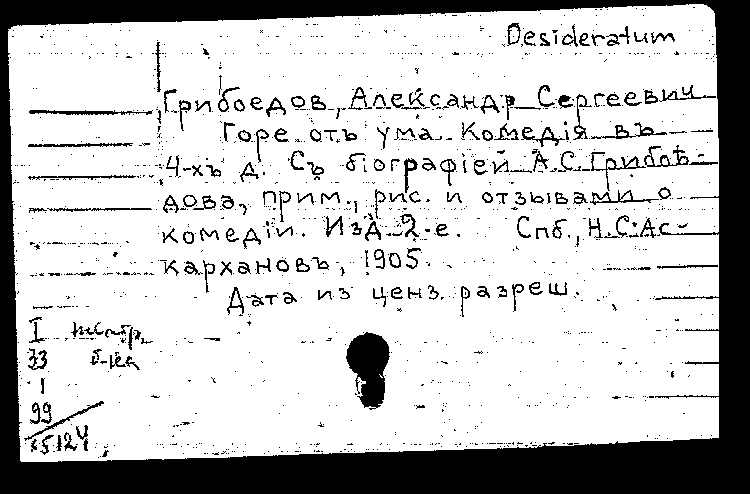 Desideratum
Грибоедов, Александр Сергеевич
Горе отъ ума. Комедія въ
4-хъ д. Съ біографіей А.С. Грибоѣ-
дова, прим., рис. и отзывами о
комедіи. Изд. 2-е. Спб., Н.С. Ас-
кархановъ, 1905.
Дата из ценз. разреш.
I
33 б-ка
1
99